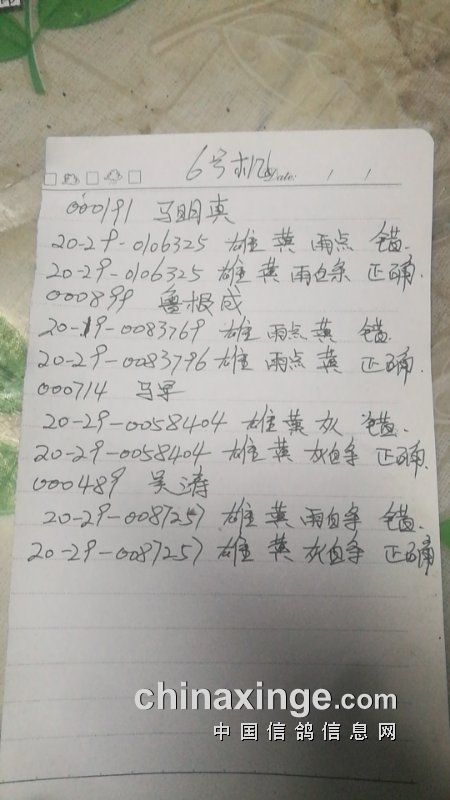 6号机
Date: / /
000191 马明真
20-29-0106325 雄 黄 雨点 错.
20-29-0106325 雄 黄 雨白条 正确.
000899 鲁根成
20-19-0083769 雄 雨点 黄 错.
20-29-0083796 雄 雨点 黄 正确.
000714 马早
20-29-0058404 雄 黄 灰 错.
20-29-0058404 雄 黄 灰白条 正确.
000489 吴涛
20-29-0087257 雄 黄 雨白条 错.
20-29-0087257 雄 黄 灰白条 正确
chinaxinge.com
中国信鸽信息网